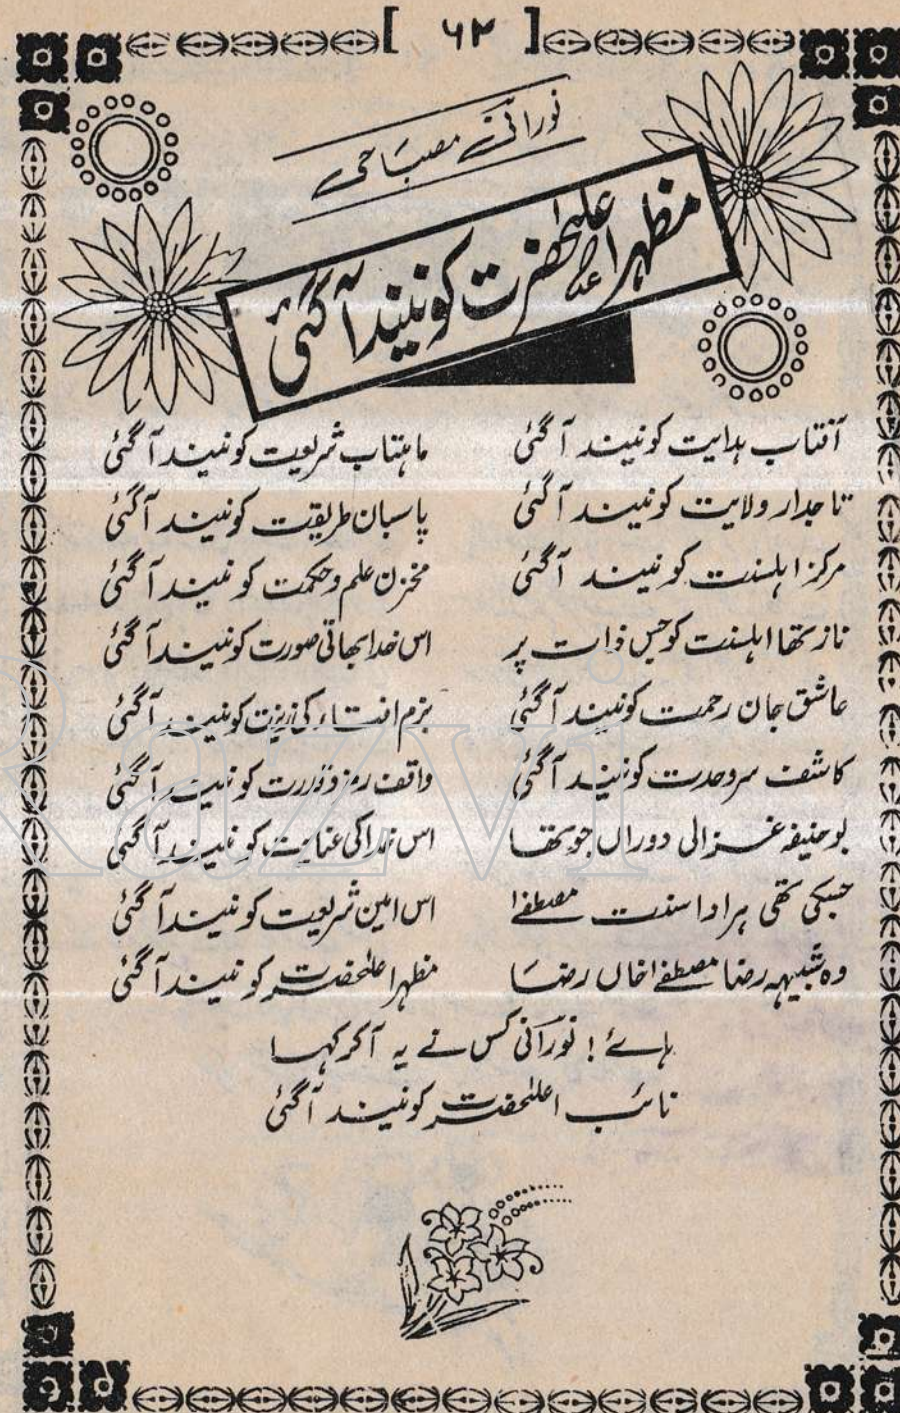 [ ۶۲ ]
نورانی مصباحی
مظہر اعلیٰحضرت کو نیند آگئی
آفتاب ہدایت کو نیند آگئی ماہتاب شریعت کو نیند آگئی
تاجدار ولایت کو نیند آگئی پاسبان طریقت کو نیند آگئی
مرکز اہلسنت کو نیند آگئی مخزن علم و حکمت کو نیند آگئی
ناز تھا اہلسنت کو جس ذات پر اس خدا بھاتی صورت کو نیند آگئی
عاشق جان رحمت کو نیند آگئی بزم افتاء کی زینت کو نیند آگئی
کاشف سر وحدت کو نیند آگئی واقف رمز و ندرت کو نیند آگئی
بو حنیفہ غزالی دوراں جو تھا اس خدا کی عنایت کو نیند آگئی
جسکی تھی ہر ادا سنت مصطفےٰ اس امین شریعت کو نیند آگئی
وہ شبیہہ رضا مصطفےٰ خاں رضا مظہر اعلیٰحضرت کو نیند آگئی
ہائے ! نورانی کس نے یہ آکر کہا
نائب اعلیٰحضرت کو نیند آگئی
Razvi